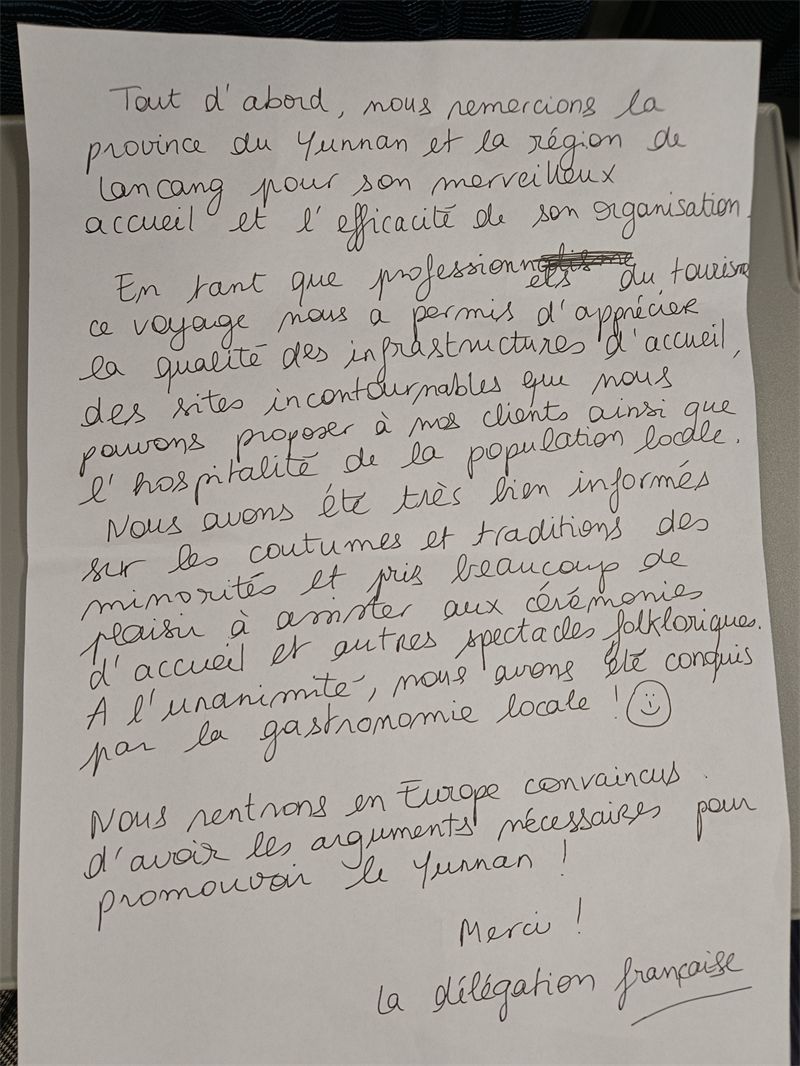 Tout d'abord, nous remercions la
province du Yunnan et la région de
Lancang pour son merveilleux
accueil et l'efficacité de son organisation.
En tant que professionnels du tourisme
ce voyage nous a permis d'apprécier
la qualité des infrastructures d'accueil,
des sites incontournables que nous
pouvons proposer à nos clients ainsi que
l'hospitalité de la population locale.
Nous avons été très bien informés
sur les coutumes et traditions des
minorités et pris beaucoup de
plaisir à assister aux cérémonies
d'accueil et autres spectacles folkloriques.
A l'unanimité, nous avons été conquis
par la gastronomie locale !
Nous rentrons en Europe convaincus
d'avoir les arguments nécessaires pour
promouvoir le Yunnan !
Merci !
La délégation française